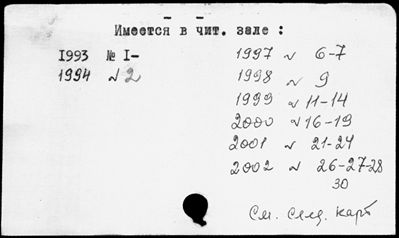 Имеется в чит. зале :
1993 № I-
1994 № 2
1997 № 6-7
1998 № 9
1999 № 11-14
2000 № 16-19
2001 № 21-24
2002 № 26-27-28
30
См. след. карт